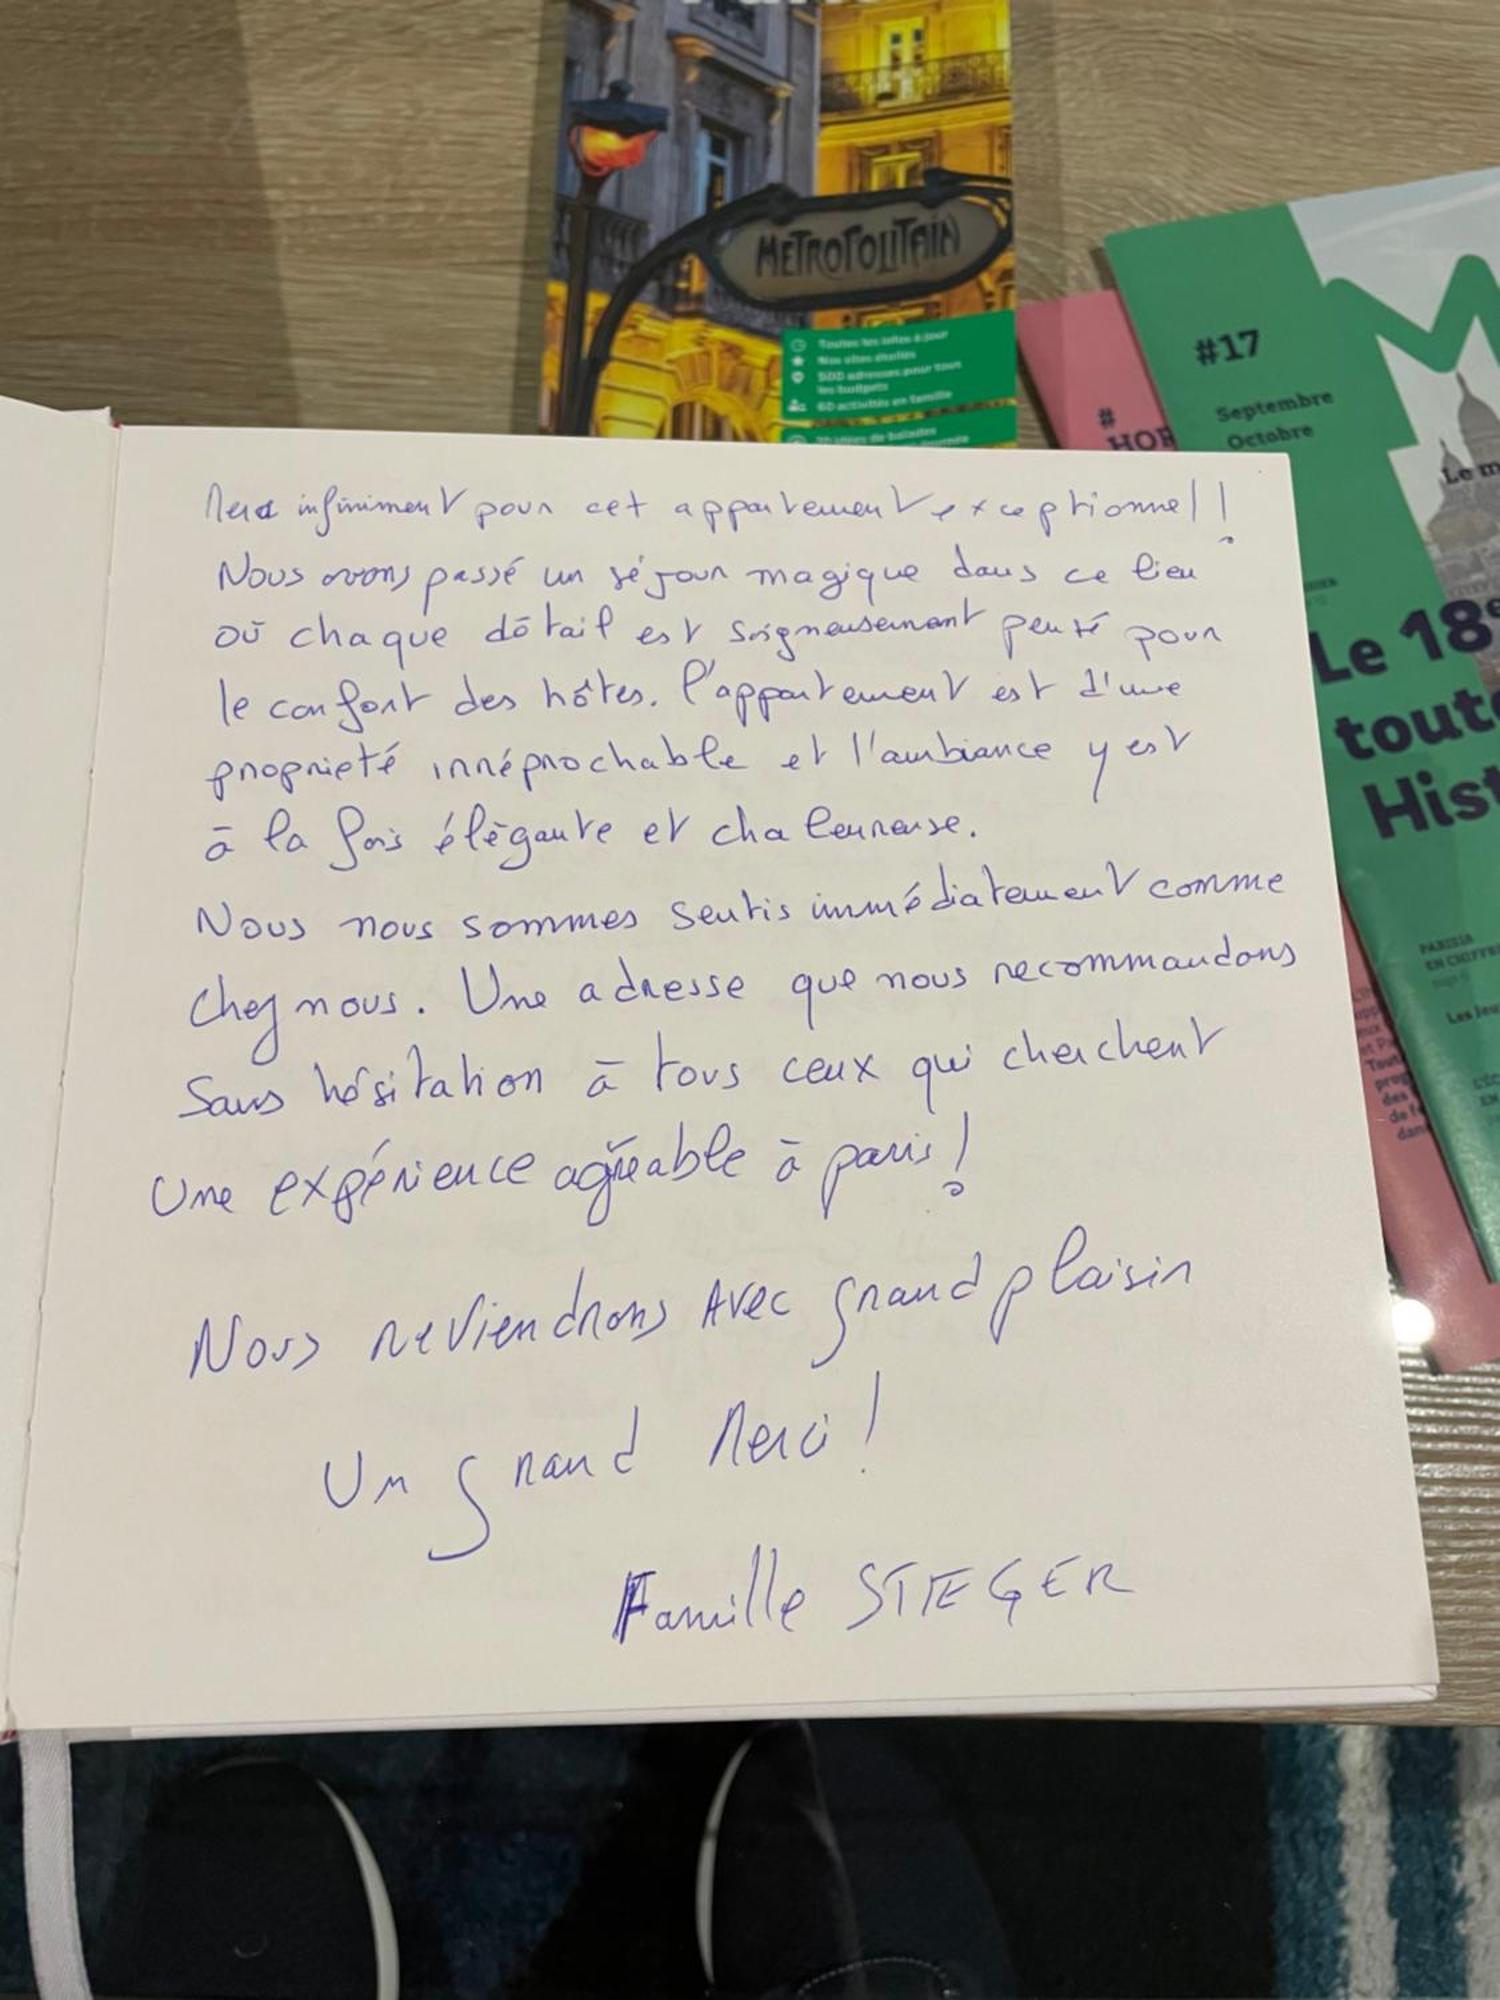 METROPOLITAIN
Toutes les infos à jour
Nos sites étoilés
500 adresses pour tous
les budgets
60 activités en famille
#17
Septembre
Octobre
#
HOR
Le m
Le 18e
toute
Hist
PARISIA
EN CHIFFRE
Les Jeu
Merci infiniment pour cet appartement exceptionnel!
Nous avons passé un séjour magique dans ce lieu
où chaque détail est soigneusement pensé pour
le confort des hôtes. l'appartement est d'une
propreté irréprochable et l'ambiance y est
à la fois élégante et chaleureuse.
Nous nous sommes sentis immédiatement comme
chez nous. Une adresse que nous recommandons
Sans hésitation à tous ceux qui cherchent
Une expérience agréable à paris!
Nous reviendrons Avec grand plaisir
Un grand Merci!
Famille STIEGER